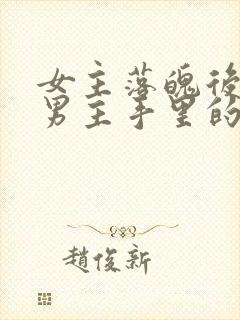 女主落魄後
男主手里的
趙俊新